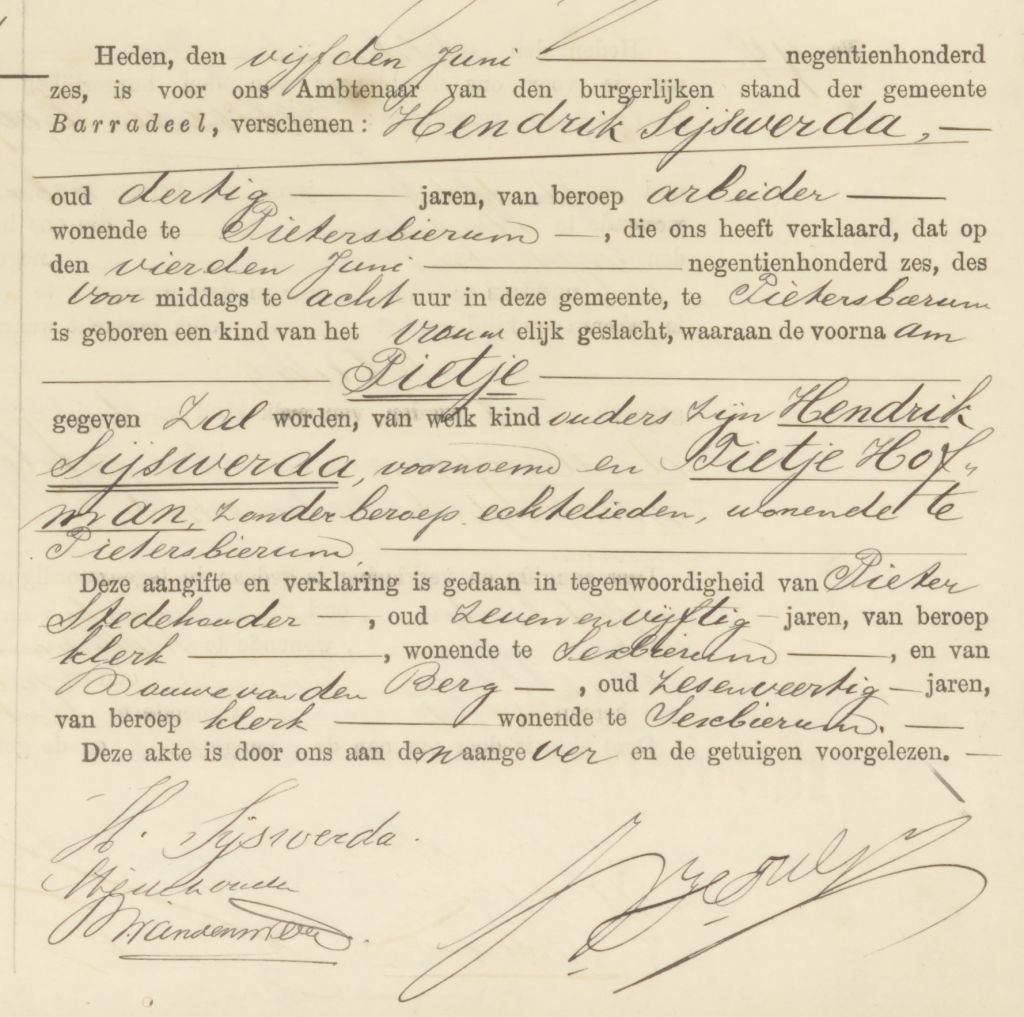 Heden, den vijfden Juni negentienhonderd
zes, is voor ons Ambtenaar van den burgerlijken stand der gemeente
Barradeel, verschenen: Hendrik Sijswerda,
oud dertig jaren, van beroep arbeider
wonende te Pietersbierum, die ons heeft verklaard, dat op
den vierden Juni negentienhonderd zes, des
voor middags te acht uur in deze gemeente, te Pietersbierum
is geboren een kind van het vrouw elijk geslacht, waaraan de voorna am
Pietje
gegeven zal worden, van welk kind ouders zijn Hendrik
Sijswerda, voornoemd en Tietje Hof„
man, zonder beroep, echtelieden, wonende te
Pietersbierum
Deze aangifte en verklaring is gedaan in tegenwoordigheid van Pieter
Stedehouder, oud zevenenvijftig jaren, van beroep
klerk, wonende te Sexbierum, en van
Douwe van den Berg, oud zesenveertig jaren,
van beroep klerk wonende te Sexbierum.
Deze akte is door ons aan den aangever en de getuigen voorgelezen.
H. Sijswerda.